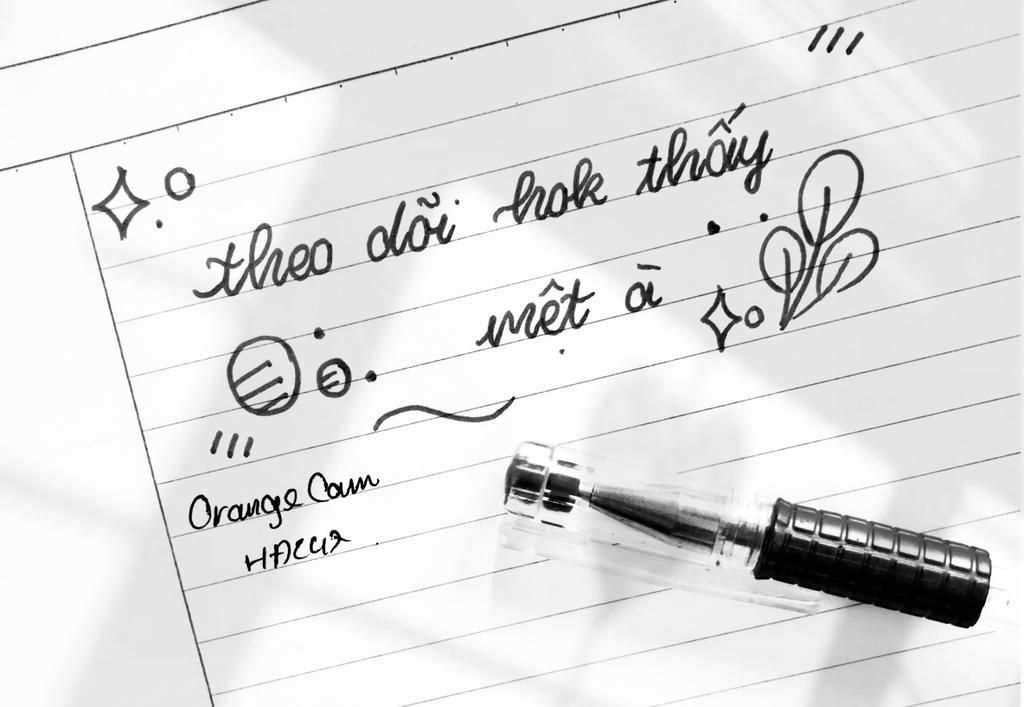 theo dõi hok thấy
mệt à
Orange Cam